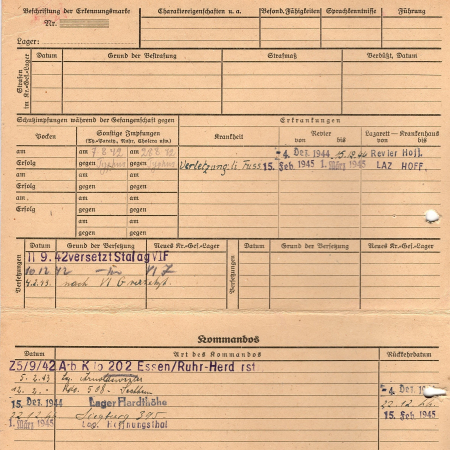 Beschriftung der Erkennungsmarke Charaktereigenschaften u. a. Besond. Fähigkeiten Sprachkenntnisse Führung
Nr.
Lager:
Strafen im Kr.-Gef.-Lager
Datum Grund der Bestrafung Strafmaß Verbüßt, Datum
Schutzimpfungen während der Gefangenschaft gegen Erkrankungen
Pocken Sonstige Impfungen Krankheit Revier Lazarett — Krankenhaus
(Ty.-Paraty., Ruhr, Cholera usw.) von bis von bis
am am 7.8.42 am
Erfolg gegen Typhus gegen Typhus Verletzung li. Fuss. 4. Dez. 1944 15.12.44 Revier Hoff.
am am am 15. Feb. 1945 1. März 1945 LAZ HOFF.
Erfolg gegen gegen
am am am
Erfolg gegen gegen
am am
gegen gegen
Versetzungen
Datum Grund der Versetzung Neues Kr.-Gef.-Lager Versetzungen Datum Grund der Versetzung Neues Kr.-Gef.-Lager
11 9. 42 versetzt Stalag VI F
10.12.42 VI J
nach VI G versetzt.
Kommandos
Datum Art des Kommandos Rückkehrdatum
25/9/42 Arb Kdo 202 Essen/Ruhr-Herd rst
5.2.43
12.2. Kdo. 508 4. Dez.
15. Dez. 1944 Lager Hardthöhe 22.12.44
22.12.44 Siegburg 395. 15. Feb. 1945
1. März 1945 Lag. Hoffnungsthal